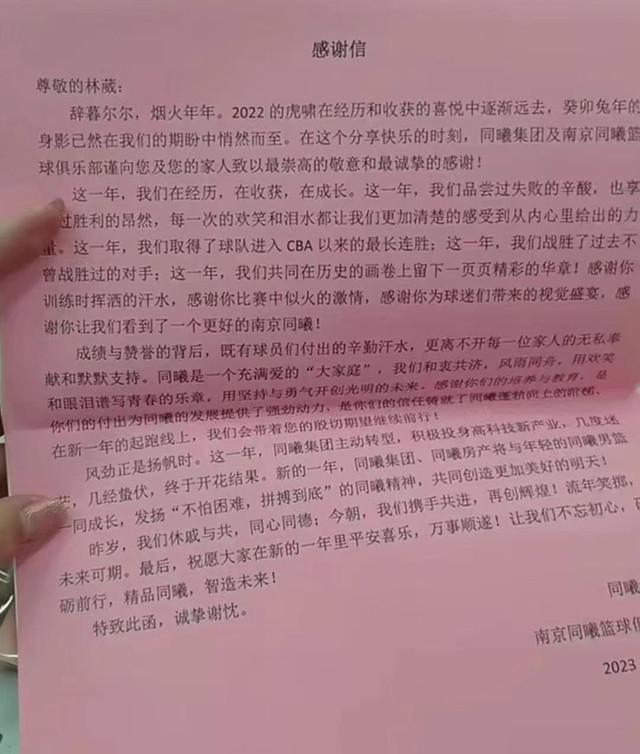 感谢信
尊敬的林葳：
辞暮尔尔，烟火年年。2022 的虎啸在经历和收获的喜悦中逐渐远去，癸卯兔年的
身影已然在我们的期盼中悄然而至。在这个分享快乐的时刻，同曦集团及南京同曦篮
球俱乐部谨向您及您的家人致以最崇高的敬意和最诚挚的感谢！
这一年，我们在经历，在收获，在成长。这一年，我们品尝过失败的辛酸，也享
过胜利的昂然，每一次的欢笑和泪水都让我们更加清楚的感受到从内心里给出的力
量。这一年，我们取得了球队进入 CBA 以来的最长连胜；这一年，我们战胜了过去不
曾战胜过的对手；这一年，我们共同在历史的画卷上留下一页页精彩的华章！感谢你
训练时挥洒的汗水，感谢你比赛中似火的激情，感谢你为球迷们带来的视觉盛宴，感
谢你让我们看到了一个更好的南京同曦！
成绩与赞誉的背后，既有球员们付出的辛勤汗水，更离不开每一位家人的无私奉
献和默默支持。同曦是一个充满爱的“大家庭”，我们和衷共济，风雨同舟，用欢笑
和眼泪谱写青春的乐章，用坚持与勇气开创光明的未来。感谢你们的培养与教育，是
你们的付出为同曦的发展提供了强劲动力，是你们的信任铸就了同曦蓬勃向上的阶梯，
在新一年的起跑线上，我们会带着您的殷切期望继续前行！
风劲正是扬帆时。这一年，同曦集团主动转型，积极投身高科技新产业，几度迷
茫，几经蛰伏，终于开花结果。新的一年，同曦集团、同曦房产将与年轻的同曦男篮
一同成长，发扬“不怕困难，拼搏到底”的同曦精神，共同创造更加美好的明天！
昨岁，我们休戚与共，同心同德；今朝，我们携手共进，再创辉煌！流年笑掷，
未来可期。最后，祝愿大家在新的一年里平安喜乐，万事顺遂！让我们不忘初心，砥
砺前行，精品同曦，智造未来！
特致此函，诚挚谢忱。
同曦
南京同曦篮球俱
2023